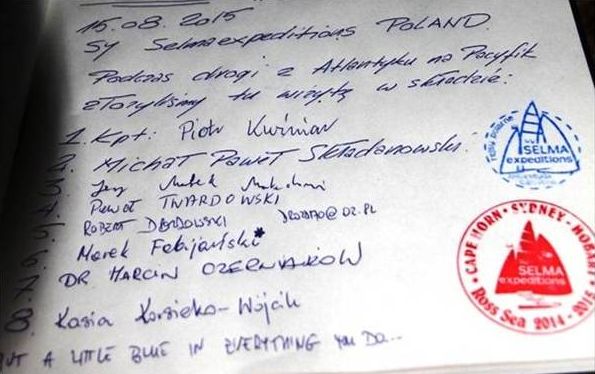 15.08.2015
Sy Selmaexpeditions POLAND.
Podczas drogi z Atlantyku na Pacyfik
złożyliśmy tu wizytę w składzie:
1. Kpt: Piotr Kuźniar
2. Michał Paweł Składanowski
3. Jerzy
4. Paweł TWARDOWSKI
5. ROBERT
6. Marek
7. DR MARCIN
8. Kasia Wójcik
A LITTLE BLUE IN EVERYTHING YOU DO...
SELMA
expeditions
CAPE HORN · SYDNEY · HOBART
SELMA
expeditions
Ross Sea 2014-2015